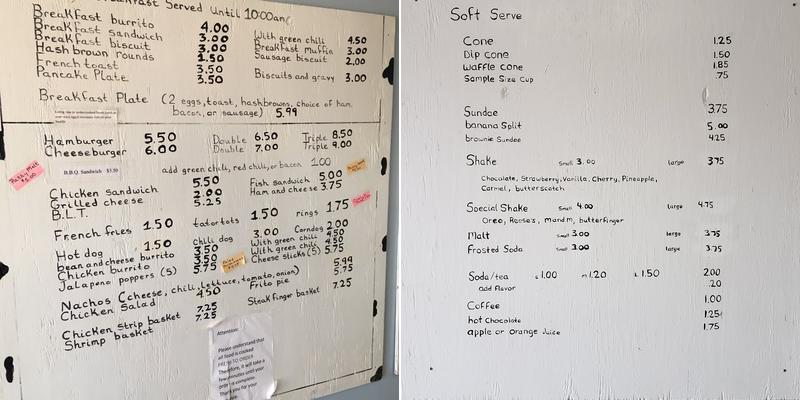 Breakfast Served Until 10:00am
Breakfast burrito 4.00 With green chili 4.50
Breakfast sandwich 3.00 Breakfast muffin 3.00
Breakfast biscuit 3.00 Sausage biscuit 2.00
Hashbrown rounds 1.50
French toast 3.50
Pancake Plate 3.50 Biscuits and gravy 3.00
Breakfast Plate (2 eggs, toast, hashbrowns, choice of ham, bacon, or sausage) 5.99
Hamburger 5.50 Double 6.50 Triple 8.50
Cheeseburger 6.00 Double 7.00 Triple 9.00
B.B.Q. Sandwich $3.50 add green chili, red chili, or bacon 1.00
Chicken sandwich 5.50 Fish sandwich 5.00
Grilled cheese 2.00 Ham and cheese 3.75
B.L.T. 5.25
French fries 1.50 tatortots 1.50 rings 1.75
Hot dog 1.50 chili dog 3.00 Corndog 2.00
bean and cheese burrito 3.50 With green chili 4.50
Chicken burrito 3.50 With green chili 4.50
Jalapeno poppers (5) 5.75 Cheese sticks (5) 5.75
Nachos (cheese, chili, lettuce, tomato, onion) 5.99
Chicken Salad 4.50 Frito pie 5.75
Chicken strip basket 7.25 Steak finger basket 7.25
Shrimp basket 7.25
Attention:
Please understand that
all food is cooked
FRESH TO ORDER
Therefore, it will take a
few minutes until your
order is complete.
Thank you for your
Soft Serve
Cone 1.25
Dip cone 1.50
Waffle cone 1.85
Sample Size Cup .75
Sundae 3.75
banana Split 5.00
brownie Sundae 4.25
Shake Small 3.00 large 3.75
Chocolate, Strawberry, Vanilla, Cherry, Pineapple,
Carmel, butterscotch
Special Shake Small 4.00 large 4.75
Oreo, Reese's, mandm, butterfinger
Malt Small 3.00 large 3.75
Frosted Soda Small 3.00 large 3.75
Soda/tea s 1.00 m 1.20 L 1.50 2.00
add flavor .20
Coffee 1.00
hot Chocolate 1.25
apple or Orange Juice 1.75